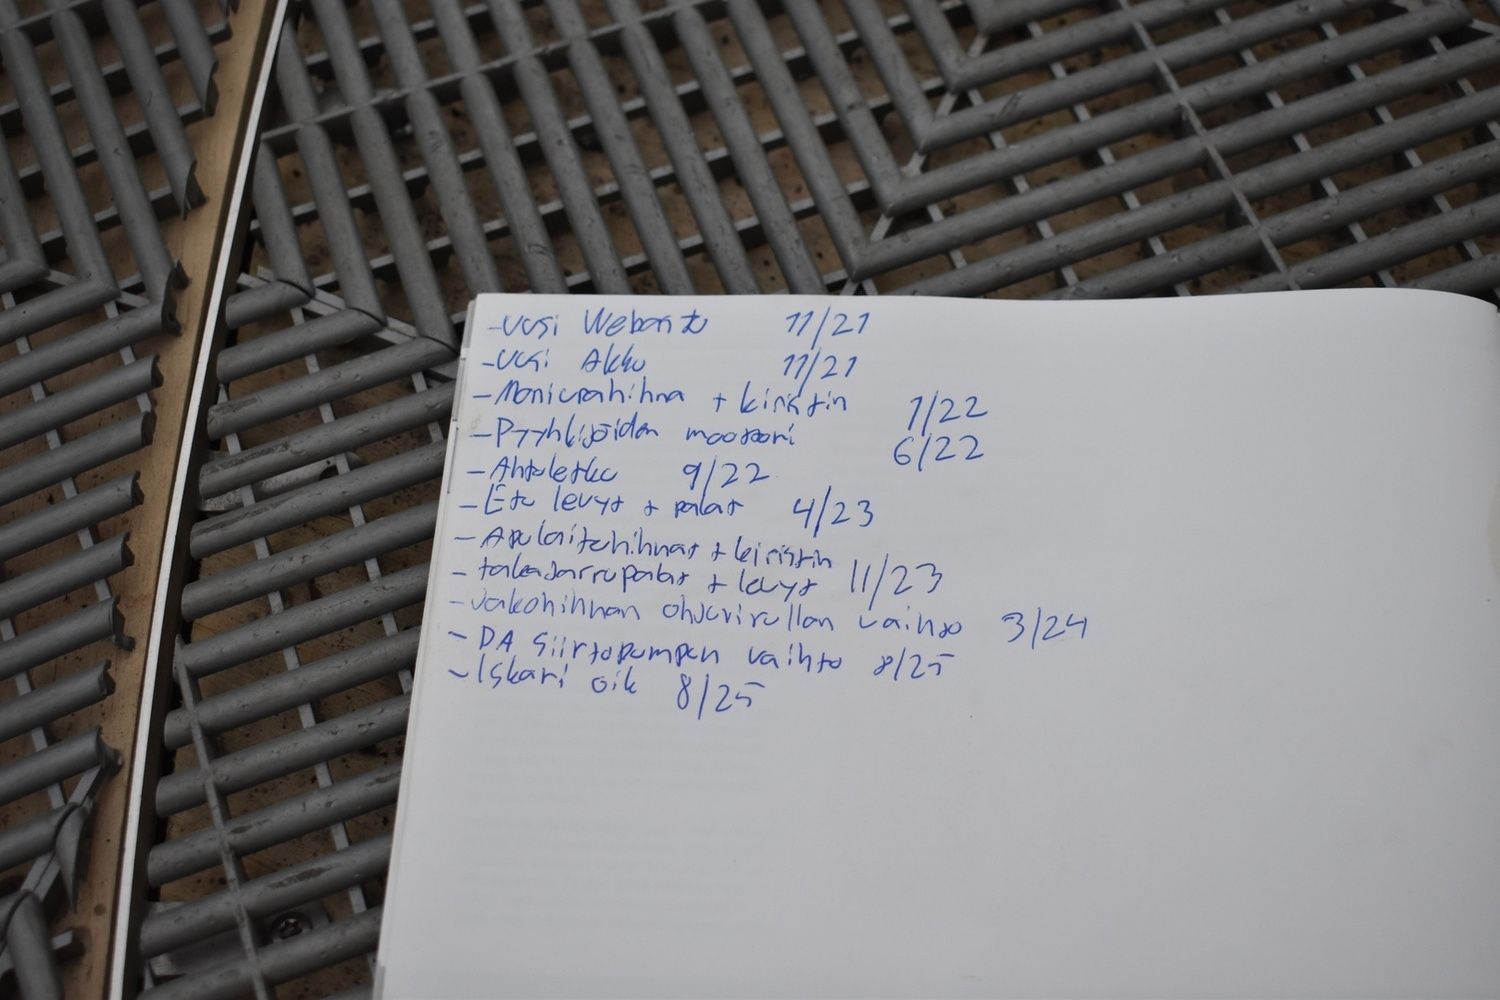 - Uusi Webasto 11/21
- Uusi Akku 11/21
- Moniurahihna + kiristin 1/22
- Pyyhkijöiden moottori 6/22
- Ahtoletku 9/22
- Etu levyt + palat 4/23
- Apulaitehihnat + kiristin
- takajarrupalat + levyt 11/23
- Jakohihnan ohjurirullan vaihto 3/24
- DA Siirtopumpun vaihto 8/25
- Iskari oik 8/25